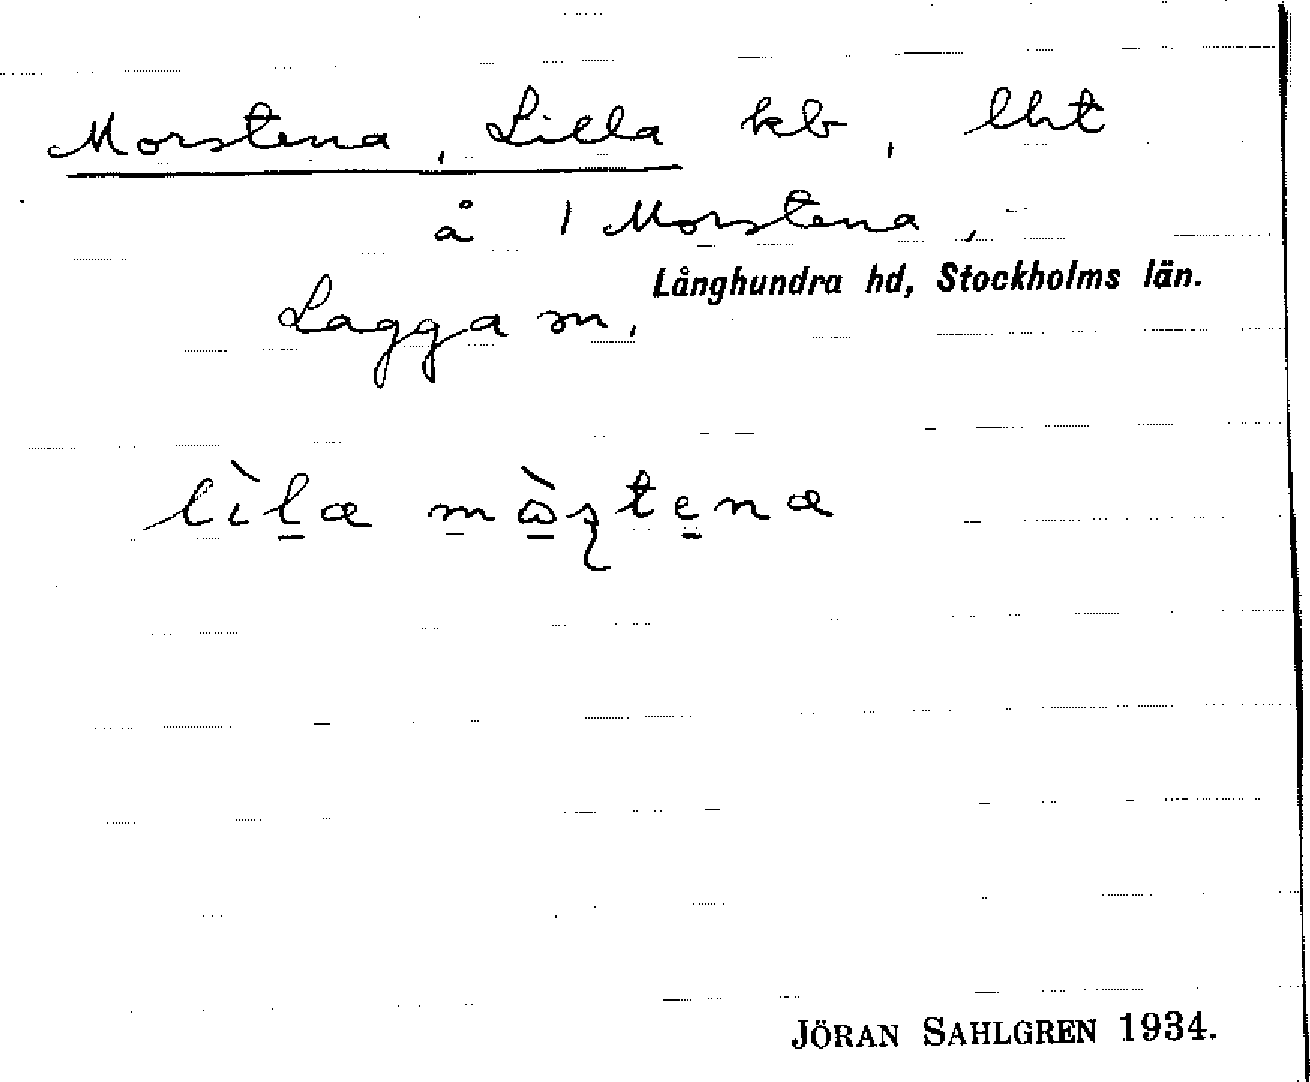 Morstena, Lilla kb, lht
å 1 Morstena,
Långhundra hd, Stockholms län.
Lagga sn.
JÖRAN SAHLGREN 1934.